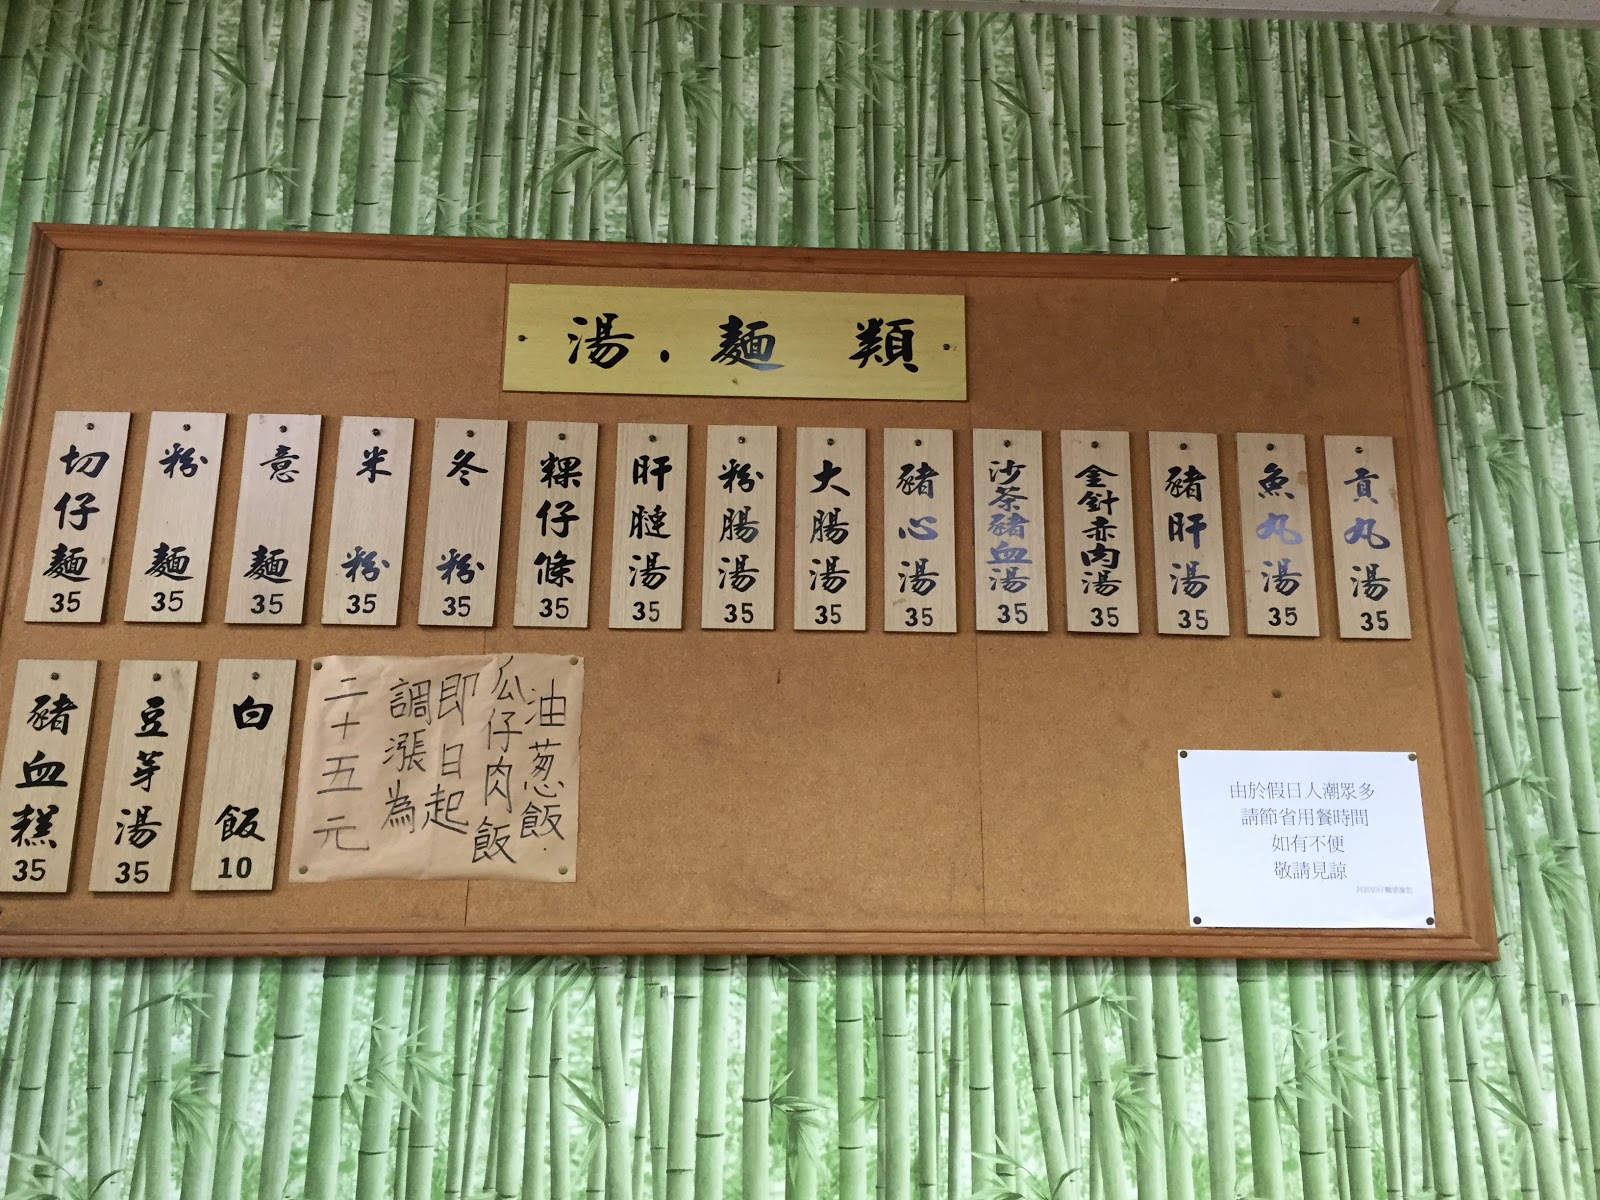 湯．麵 類
切仔麵 35
粉麵 35
意麵 35
米粉 35
冬粉 35
粿仔條 35
肝腱湯 35
粉腸湯 35
大腸湯 35
豬心湯 35
沙茶豬血湯 35
金針赤肉湯 35
豬肝湯 35
魚丸湯 35
貢丸湯 35
豬血糕 35
豆芽湯 35
白飯 10
油葱飯
公仔肉飯
即日起
調漲為
二十五元
由於假日人潮眾多
請節省用餐時間
如有不便
敬請見諒